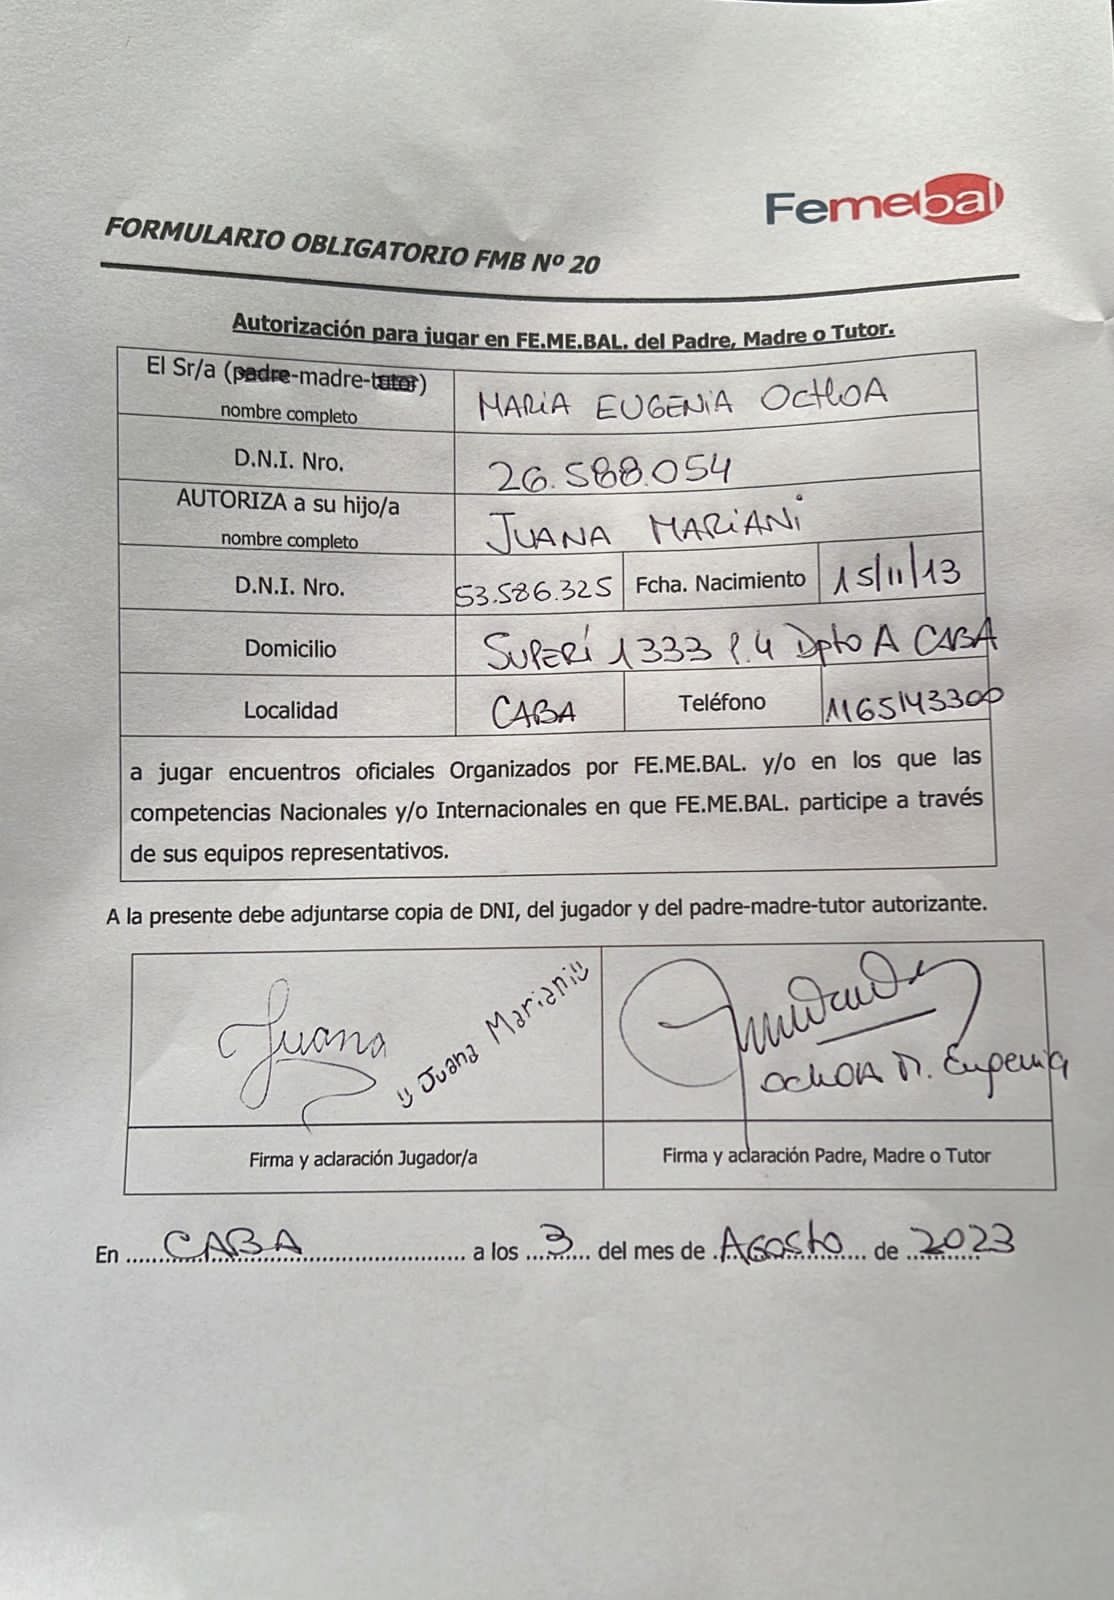 Femebal
FORMULARIO OBLIGATORIO FMB Nº 20
Autorización para jugar en FE.ME.BAL. del Padre, Madre o Tutor.
El Sr/a (padre-madre-tutor)
nombre completo
MARIA EUGENIA OCHOA
D.N.I. Nro.
26.588.054
AUTORIZA a su hijo/a
nombre completo
JUANA MARIANI
D.N.I. Nro. 53.586.325 Fcha. Nacimiento 15/11/13
Domicilio SUPERÍ 1333 P.4 Dpto A CABA
Localidad CABA Teléfono 1165143300
a jugar encuentros oficiales Organizados por FE.ME.BAL. y/o en los que las
competencias Nacionales y/o Internacionales en que FE.ME.BAL. participe a través
de sus equipos representativos.
A la presente debe adjuntarse copia de DNI, del jugador y del padre-madre-tutor autorizante.
Juana
Juana Mariani
OCHOA M. Eugenia
Firma y aclaración Jugador/a
Firma y aclaración Padre, Madre o Tutor
En CABA a los 3 del mes de AGOSTO de 2023